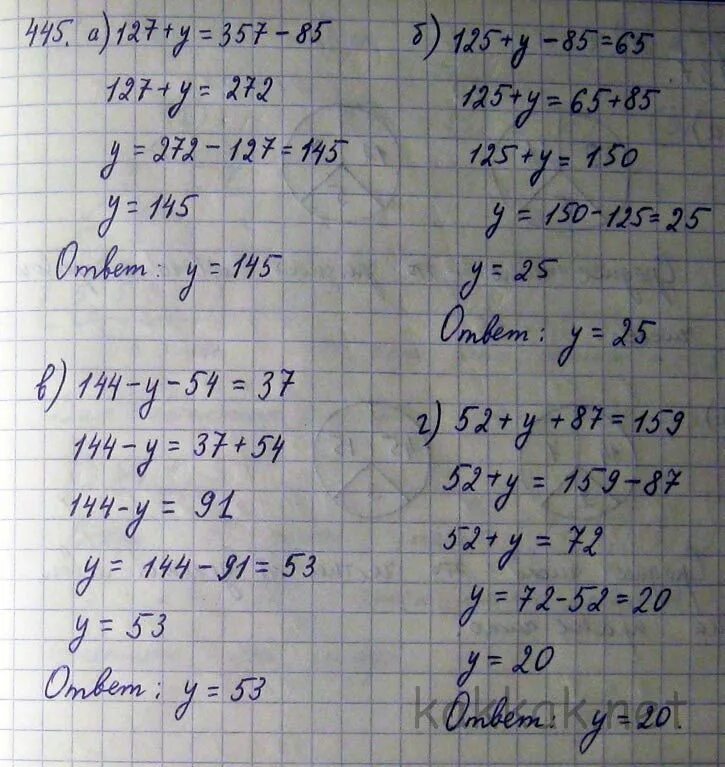 445. а) 127 + y = 357 - 85
127 + y = 272
y = 272 - 127 = 145
y = 145
Ответ: y = 145
б) 125 + y - 85 = 65
125 + y = 65 + 85
125 + y = 150
y = 150 - 125 = 25
y = 25
Ответ: y = 25
в) 144 - y - 54 = 37
144 - y = 37 + 54
144 - y = 91
y = 144 - 91 = 53
y = 53
Ответ: y = 53
г) 52 + y + 87 = 159
52 + y = 159 - 87
52 + y = 72
y = 72 - 52 = 20
y = 20
Ответ: y = 20.
kokkok.net